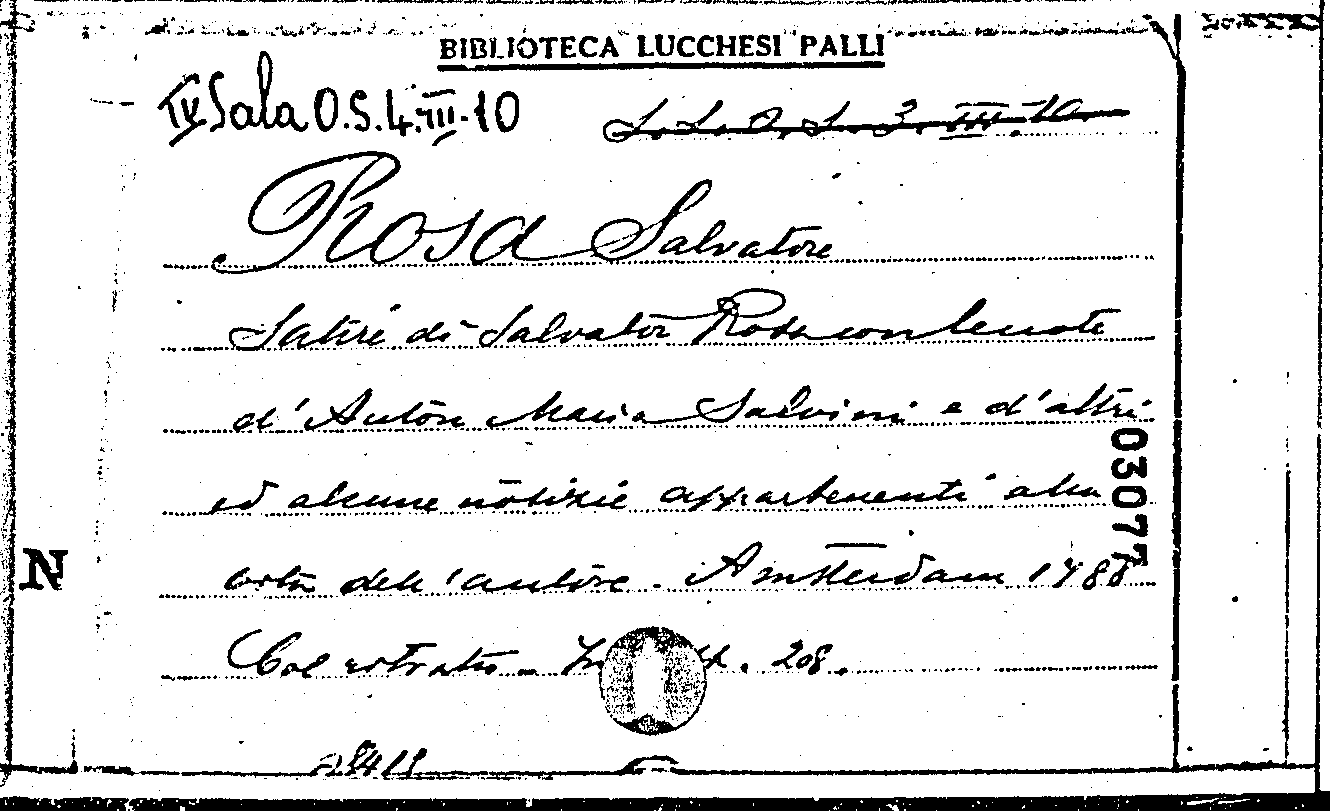 BIBLIOTECA LUCCHESI PALLI
IV Sala O.S.4.III.10 L.L.O.S.3.III.10.
Rosa Salvatore
Satire di Salvator Rosa con le note
d'Anton Maria Salvini e d'altri
ed alcune notizie appartenenti alla
vita dell'autore. Amsterdam 1788
Col ritratto. In 208.
03077
N